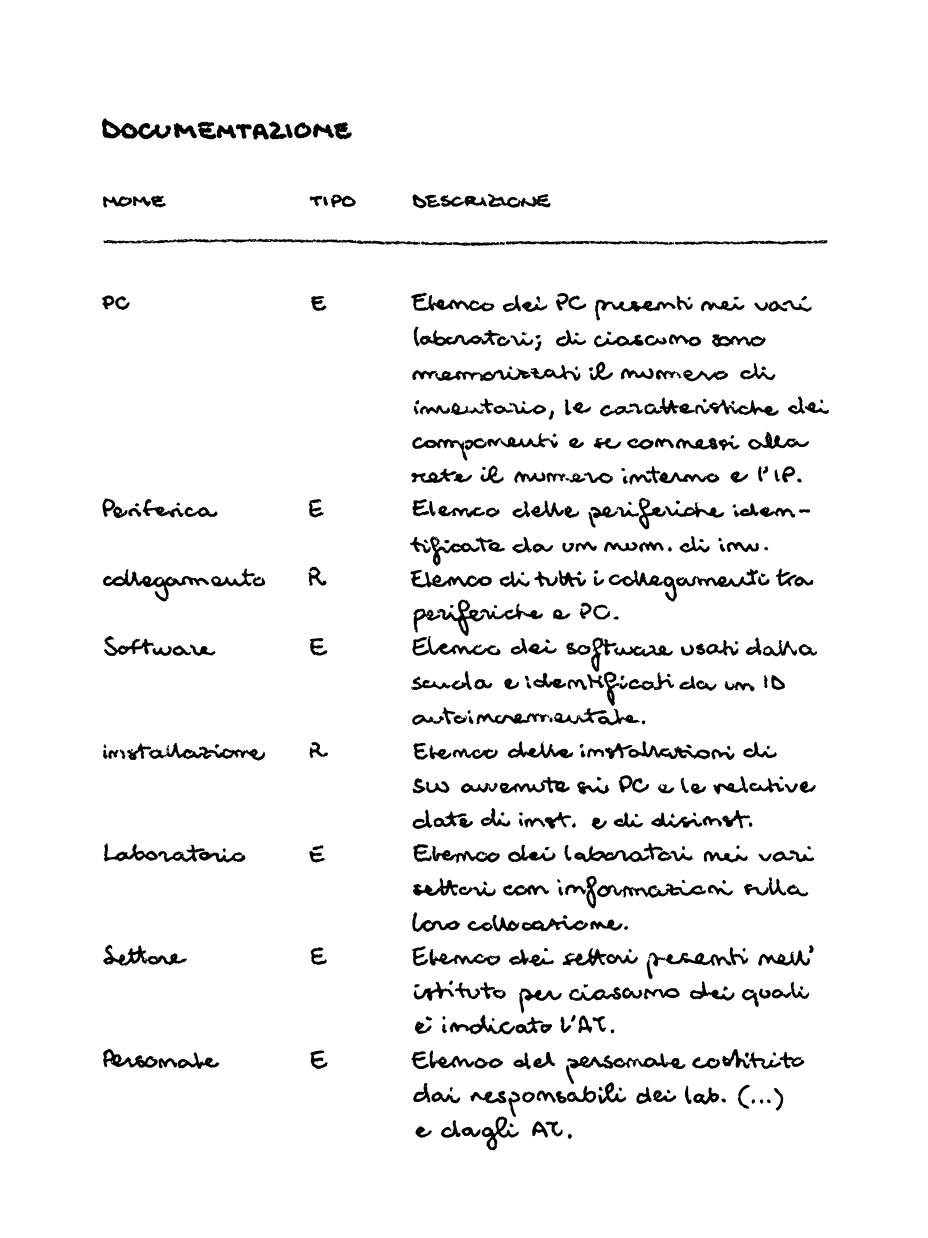 DOCUMENTAZIONE
NOME TIPO DESCRIZIONE
PC E Elenco dei PC presenti nei vari
laboratori; di ciascuno sono
memorizzati il numero di
inventario, le caratteristiche dei
componenti e se connessi alla
rete il numero interno e l'IP.
Periferica E Elenco delle periferiche iden-
tificate da un num. di inv.
collegamento R Elenco di tutti i collegamenti tra
periferiche e PC.
Software E Elenco dei software usati dalla
scuola e identificati da un ID
autoincrementale.
installazione R Elenco delle installazioni di
SW avvenute sui PC e le relative
date di inst. e di disinst.
Laboratorio E Elenco dei laboratori nei vari
settori con informazioni sulla
loro collocazione.
Settore E Elenco dei settori presenti nell'
istituto per ciascuno dei quali
è indicato l'AT.
Personale E Elenco del personale costituito
dai responsabili dei lab. (...)
e dagli AT.